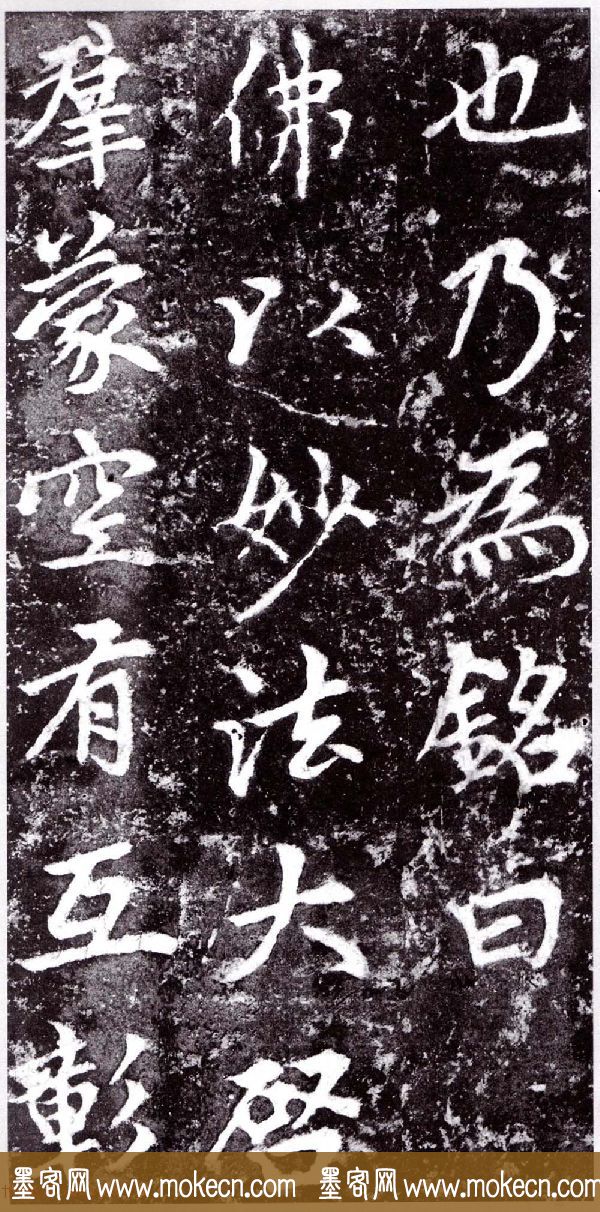 也乃為銘曰
佛以妙法大啓
羣蒙空有互彰
墨客网 www.mokecn.com 墨客网 www.mokecn.com